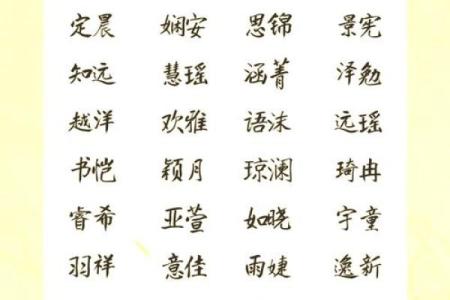 定晨 娴安 思锦 景宪
知远 慧瑶 涵菁 泽勉
越洋 欢雅 语沫 远瑶
书恺 颖月 琼澜 琦冉
睿希 亚萱 如晓 宇童
羽祥 意佳 雨婕 逸新